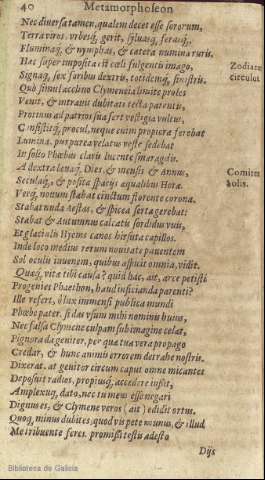 40 Metamorphoseon
Nec diversa tamen, qualem decet esse sororum,
Terra viros, urbesq́, gerit, sylvasq́, ferasq́,
Fluminaq́, & nymphas, & cætera numina ruris.
Hæc super imposita est cœli fulgentis imago,
Zodiac
Signaq́, sex foribus dextris, totidemq́, sinistris.
circulus
Quò simul acclino Clymeneïa limite proles
Venit, & intravit dubitati tecta parentis,
Protinus ad patrios sua fert vestigia vultus,
Consistitq́, procul, neque enim propiora ferebat
Lumina. purpurea velatus veste sedebat
In solio Phœbus claris lucente smaragdis.
A dextra lævaq́, Dies, & mensis & Annus,
Seculaq́, & positæ spacijs æqualibus Horæ.
Verq́, novum stabat cinctum florente corona.
Stabat nuda Aestas, & spicea serta gerebat:
Stabat & Autumnus calcatis sordidus uvis,
Et glacialis Hyems canos hirsuta capillos.
Inde loco medius rerum novitate paventem
Sol oculis iuvenem, quibus aspicit omnia, vidit.
Quæq́, viæ tibi causa? quid hac, ait, arce petisti
Progenies Phaethon, haud inficianda parenti?
Ille refert, ô lux immensi publica mundi
Phœbe pater, si das usum mihi nominis huius,
Nec falsa Clymene culpam sub imagine celat,
Pignora da genitor, per quæ tua vera propago
Credar, & hunc animis errorem detrahe nostris.
Dixerat. at genitor circum caput omne micantes
Deposuit radios, propiusq́, accedere iussit,
Amplexuq́, dato, nec tu meus esse negari
Dignus es, & Clymene veros (ait) edidit ortus.
Quoq́, minus dubites, quod vis pete munus, & illud
Me tribuente feres. promissis testis adesto
Dijs
Biblioteca de Galicia